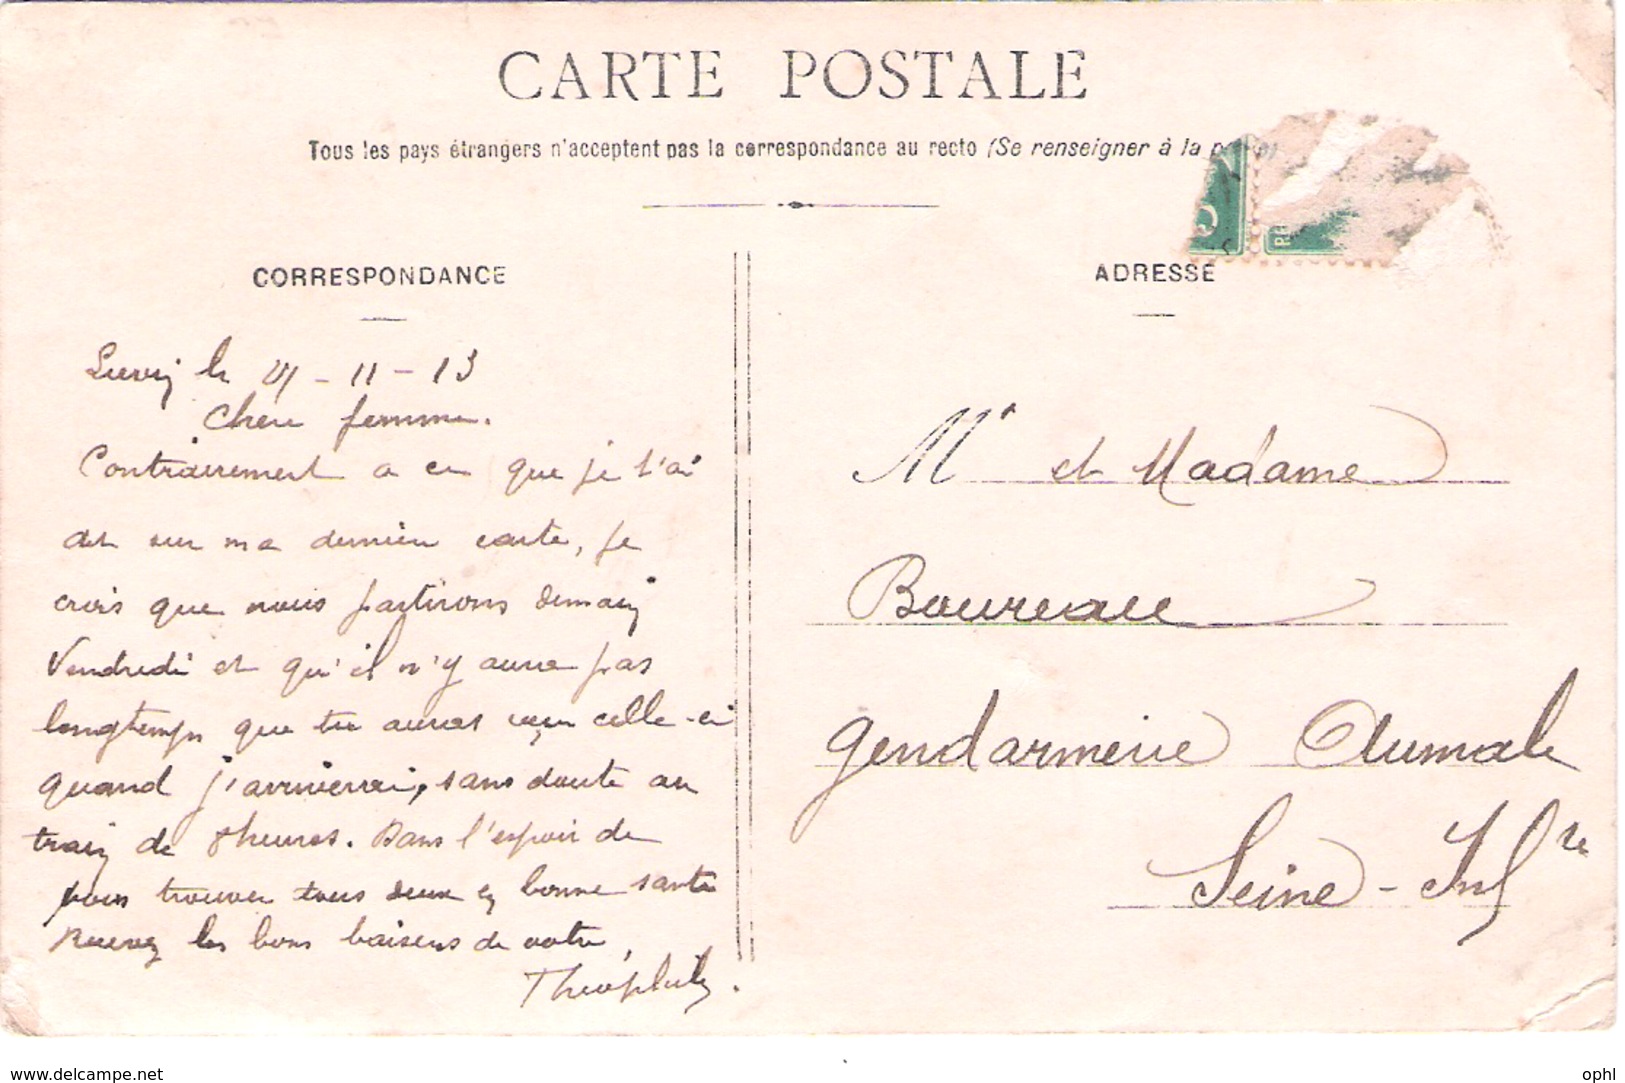 CARTE POSTALE
Tous les pays étrangers n'acceptent pas la correspondance au recto (Se renseigner à la poste)
CORRESPONDANCE
le 21 - 11 - 13
Chère femme.
Contrairement a ce que je t'ai
dit sur ma dernière carte, je
crois que nous partirons demain
Vendredi et qu'il n'y aura pas
longtemps que tu auras reçu celle-ci
quand j'arriverai, sans doute au
train de 8 heures. Dans l'espoir de
vous trouver tous deux en bonne santé
Recevez les bons baisers de votre
Théophile.
5
ADRESSE
Mr et Madame
Boureau
Gendarmerie Aumale
Seine-Infre
www.delcampe.net
ophl